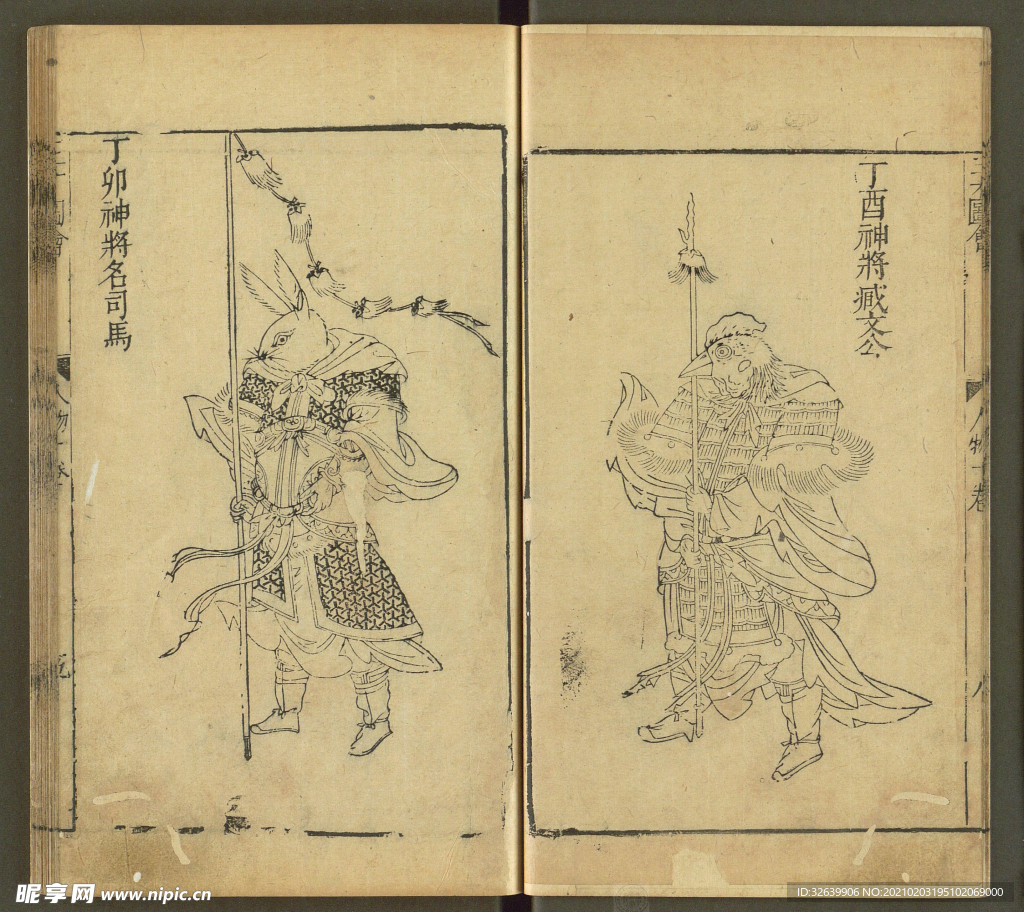 丁酉神將臧文公
三才圖會
人物十卷
八
丁卯神將名司馬
昵享网 www.nipic.cn
ID:32639906 NO:20210203195102069000